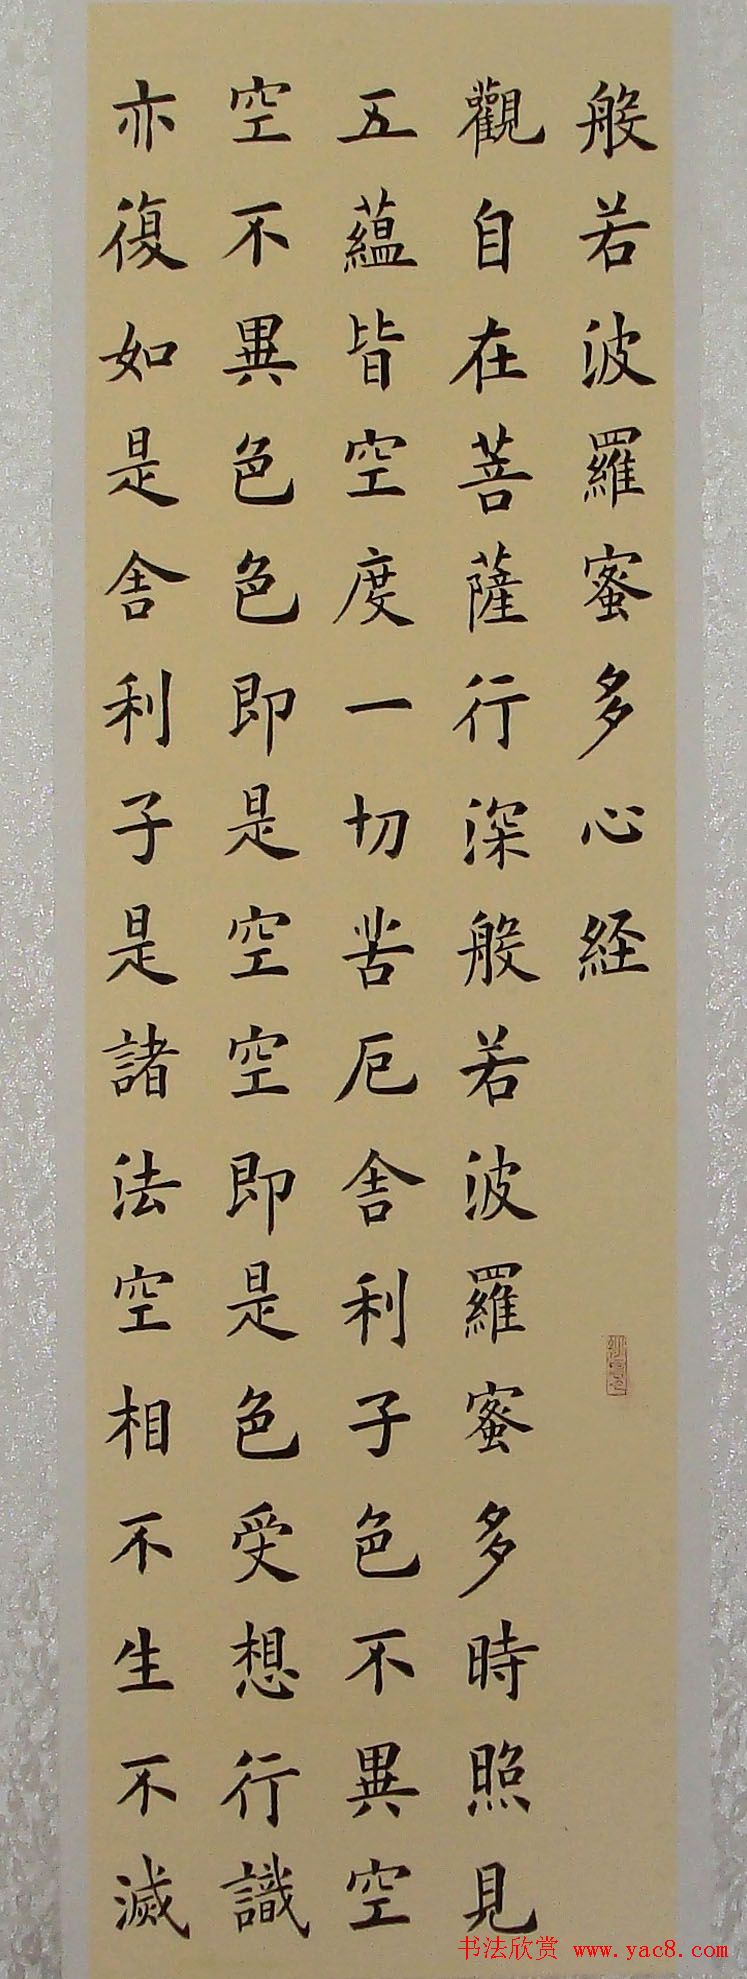 般若波羅蜜多心経
觀自在菩薩行深般若波羅蜜多時照見
五蘊皆空度一切苦厄舎利子色不異空
空不異色色即是空空即是色受想行識
亦復如是舎利子是諸法空相不生不滅
书法欣赏 www.yac8.com